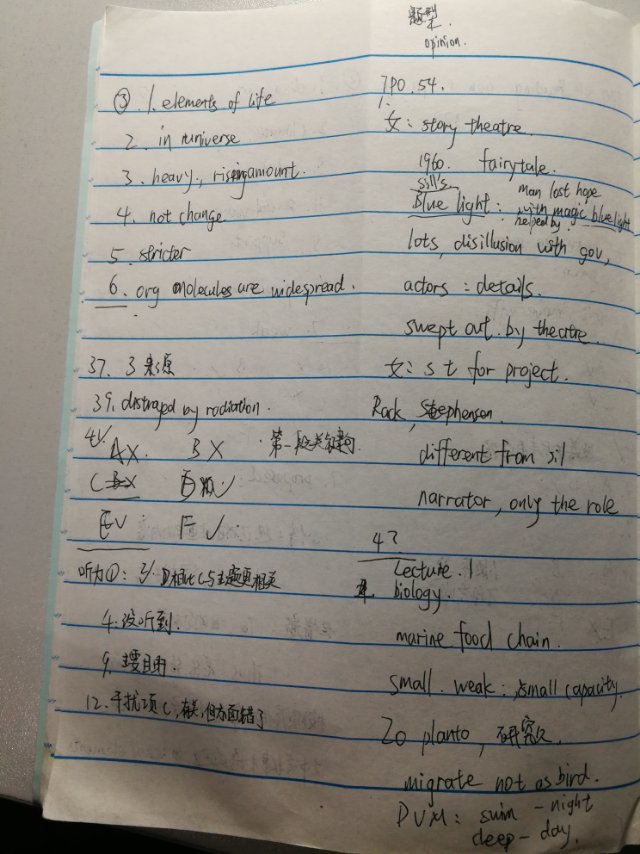 ③ 1. elements of life
2. in universe
3. heavy, rising amount.
4. not change
5. stricter
6. org molecules are widespread.
37. 3 来源
39. distrayed by radiation.
AX. BX 第一段关键句
C X D ✓
E✓ F ✓
听力①: 3. D相比C与主题更相关
4. 没听到
9. 主要目的
12. 干扰项C, 有关, 但方面错了
题型
opinion.
TPO. 54.
1.
女: story theatre.
1960. fairytale.
sill's man lost hope
Blue light: with magic blue light
helped by
lots, disillusion with gov,
actors: details.
swept out. by theatre.
女: s t for project.
Rack, Stephenson.
different from sil
narrator, only the role
4?
Lecture. 1
biology.
marine food chain.
small. weak: small capacity.
Zo planto, 研究
migrate not as bird.
DVM: swim - night
deep - day.